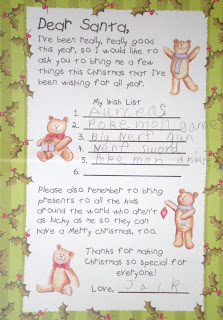 Dear Santa,
I've been really, really good
this year, so I would like to
ask you to bring me a few
things this Christmas that I've
been wishing for all year.
My Wish List
1.
2. Pokemon game
3. Big Nerf Gun
4. Nerf sword
5. Pokemon
6.
Please also remember to bring
presents to all the kids
around the world who aren't
as lucky as me so they can
have a Merry Christmas, too.
Thanks for making
Christmas so special for
everyone!
Love, Jack